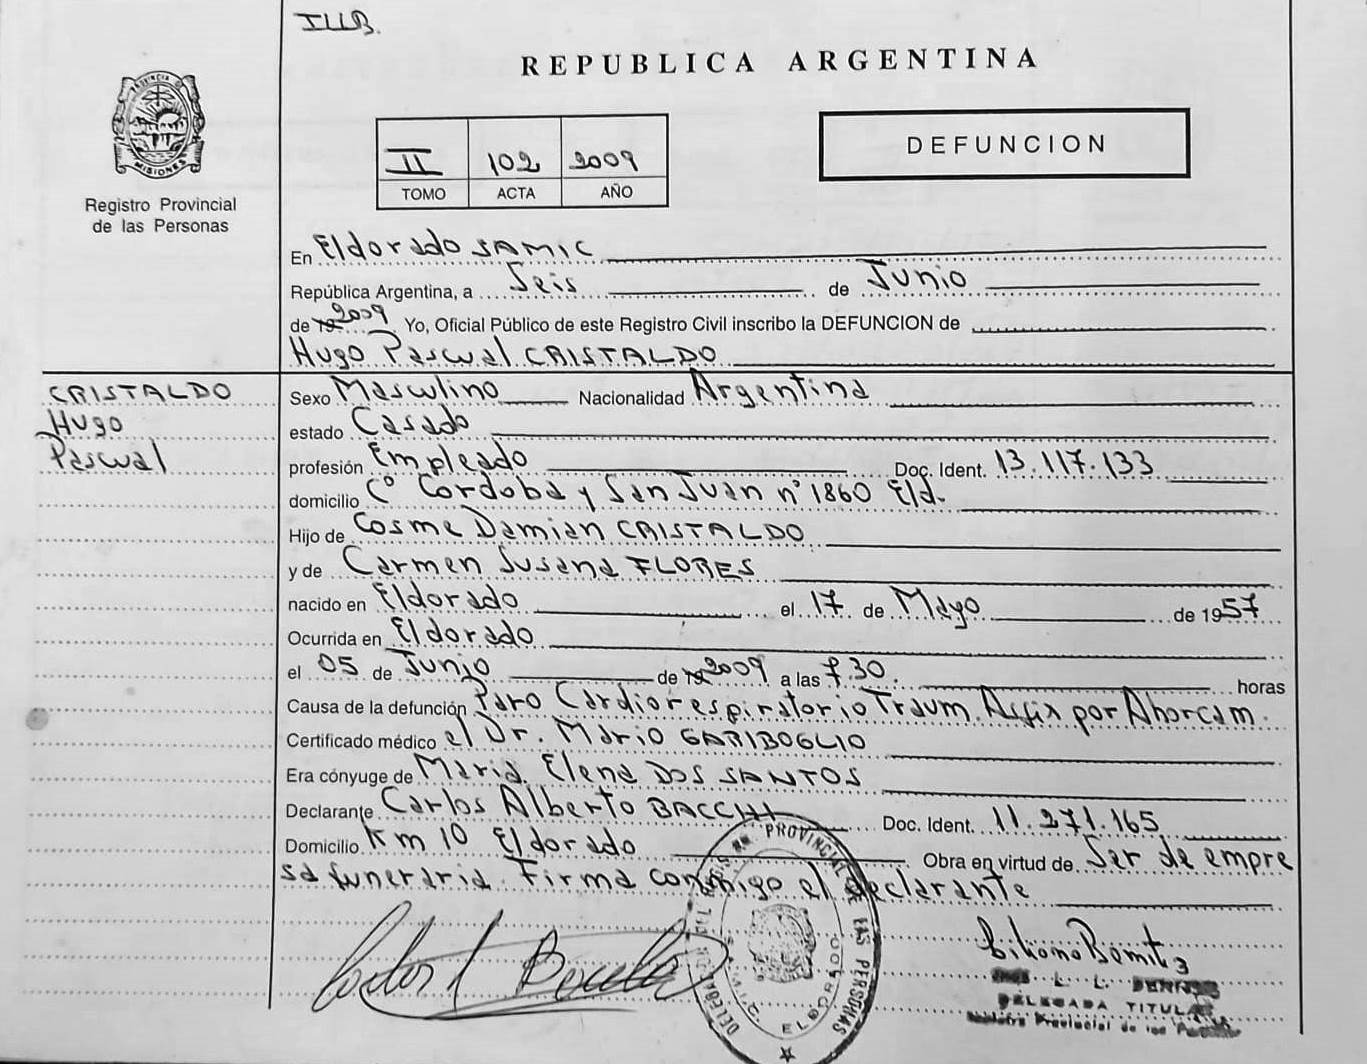 ILLB.
REPUBLICA ARGENTINA
PROVINCIA DE MISIONES
Registro Provincial
de las Personas
II 102 2009
TOMO ACTA AÑO
DEFUNCION
En Eldorado SAMIC
República Argentina, a Seis de Junio
de 19 2009 Yo, Oficial Público de este Registro Civil inscribo la DEFUNCION de
Hugo Pascual CRISTALDO
CRISTALDO
Hugo
Pascual
Sexo Masculino Nacionalidad Argentina
estado Casado
profesión Empleado Doc. Ident. 13.117.133
domicilio Cº Cordoba y San Juan nº 1860 Eld.
Hijo de Cosme Damian CRISTALDO
y de Carmen Susana FLORES
nacido en Eldorado el 17 de Mayo de 1957
Ocurrida en Eldorado
el 05 de Junio de 19 2009 a las 7.30. horas
Causa de la defunción Paro Cardiorespiratorio Traum. Asfix por Ahorcam.
Certificado médico el Dr. Mario GARIBOGLIO
Era cónyuge de Maria Elena DOS SANTOS
Declarante Carlos Alberto BACCHI Doc. Ident. 11.271.165
Domicilio Km 10 Eldorado Obra en virtud de Ser de empre
sa funeraria. Firma conmigo el declarante
PROVINCIAL DE LAS PERSONAS
ELDORADO
DELEGADA TITULAR
Provincial de las